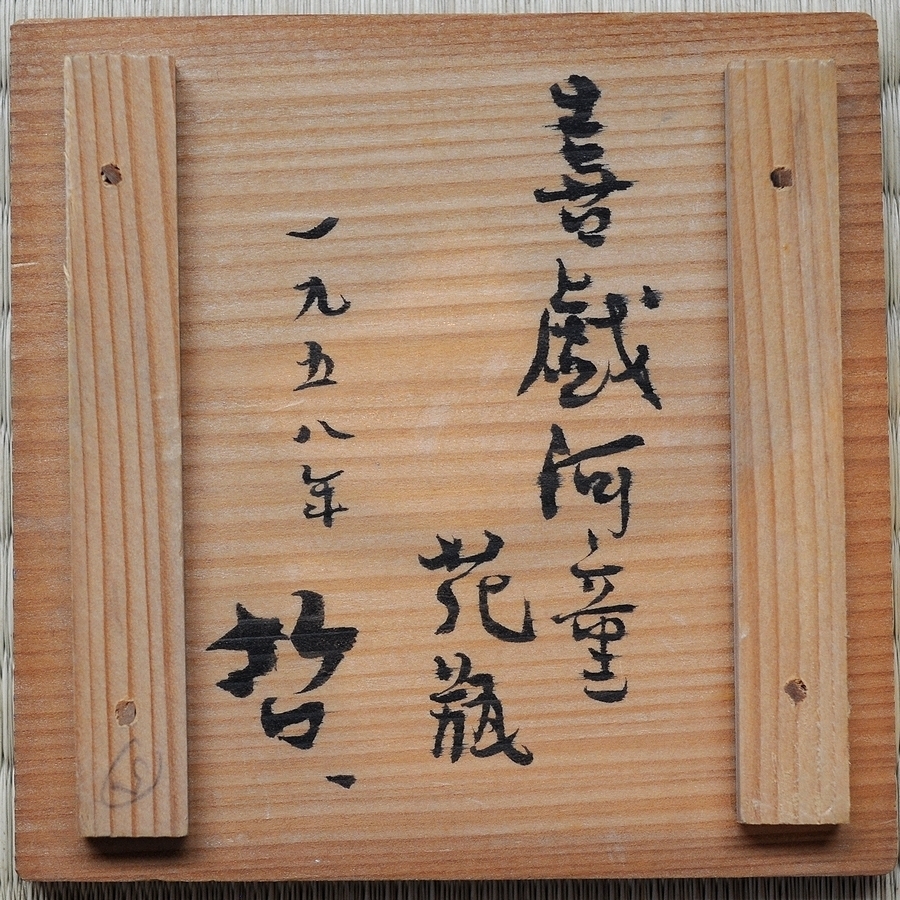 喜戯河童
花瓶
一九五八年
哲